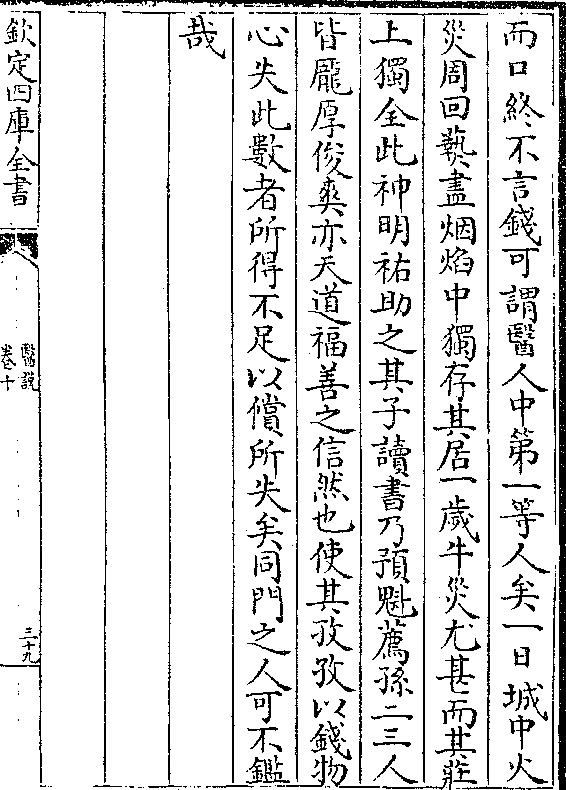 而口終不言錢可謂醫人中第一等人矣一日城中火
災周回爇盡烟焰中獨存其居一歲牛災尤甚而其莊
上獨全此神明祐助之其子讀書乃預魁薦孫二三人
皆龎厚俊爽亦天道福善之信然也使其孜孜以錢物
心失此數者所得不足以償所失矣同門之人可不鑑
哉
欽定四庫全書
醫說
卷十
三十九